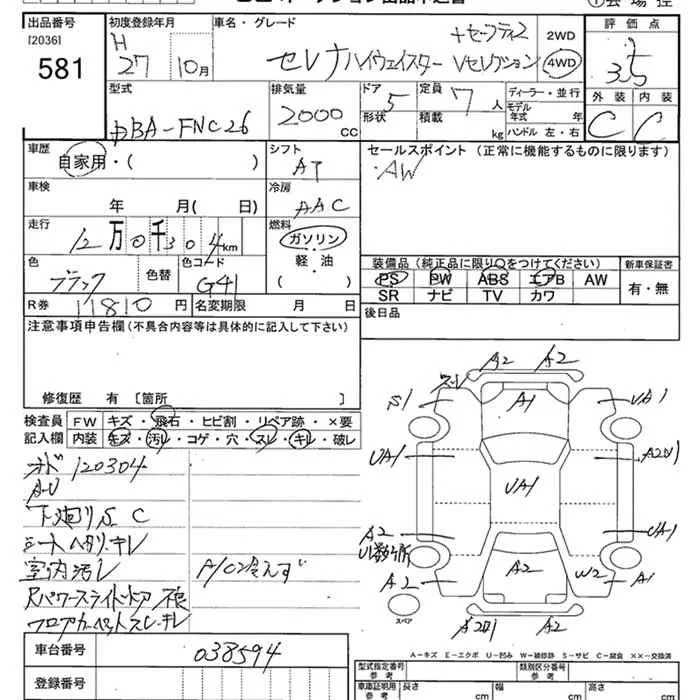 出品番号 初度登録年月 車名・グレード 評価点
[2036] H 27 10月 セレナ ハイウェイスター Vセレクション +セーフティ2 2WD 4WD 3.5
581
型式 排気量 ドア 定員 ディーラー・並行 外装 内装
DBA-FNC26 2000 CC 5 7人 モデル年式 年 C C
形状 積載 kg ハンドル 左・右
車歴 シフト セールスポイント (正常に機能するものに限ります)
自家用・( ) AT ・AW
車検 冷房
年 月( 日) AAC
走行 燃料
12万0千304km ガソリン
軽・油
( )
色 色替 色コード 装備品 (純正品に限り○をつけてください) 新車保証書
ブラック G41 PS PW ABS エアB AW 有・無
SR ナビ TV カワ
R券 11810円 名変期限 月 日 後日品
注意事項申告欄 (不具合内容等は具体的に記入して下さい)
修復歴 有 [箇所 ]
検査員 FW キズ・飛石・ヒビ割・リペア跡・×要
記入欄 内装 キズ・汚レ・コゲ・穴・スレ・キレ・破レ
オド120304
A-U
下廻りS C
シートヘタリ・キレ
室内汚レ A/C冷えず
Rパワースライドドア 不良
フロアカーペットスレ・キレ
A2 A2
スレ
S1 A1 UA1
UA1 UA1 A2U1
A2 UA1
U1数ヶ所
A2 A2 W2 A1
スペア
A2U1 A2
A-キズ E-エクボ U-凹み W-補修跡 S-サビ C-腐食 ××-交換済
車台番号 038594
登録番号
型式指定番号 類別区分番号
参考 参考
車庫証明用 長さ 幅 高さ
参考 cm cm cm